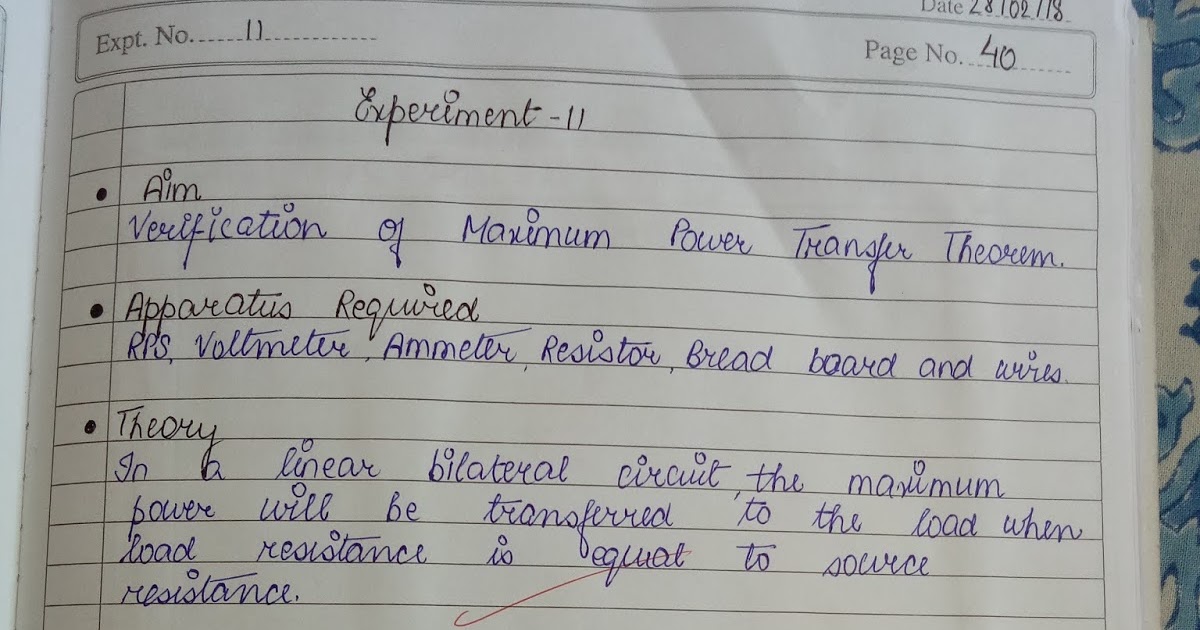 Date 28/02/18
Expt. No. 11
Page No. 40
Experiment-11
• Aim
Verification of Maximum Power Transfer Theorem.
• Apparatus Required
RPS, Voltmeter, Ammeter, Resistor, Bread board and wires.
• Theory
In a linear bilateral circuit, the maximum
power will be transferred to the load when
load resistance is equal to source
resistance.